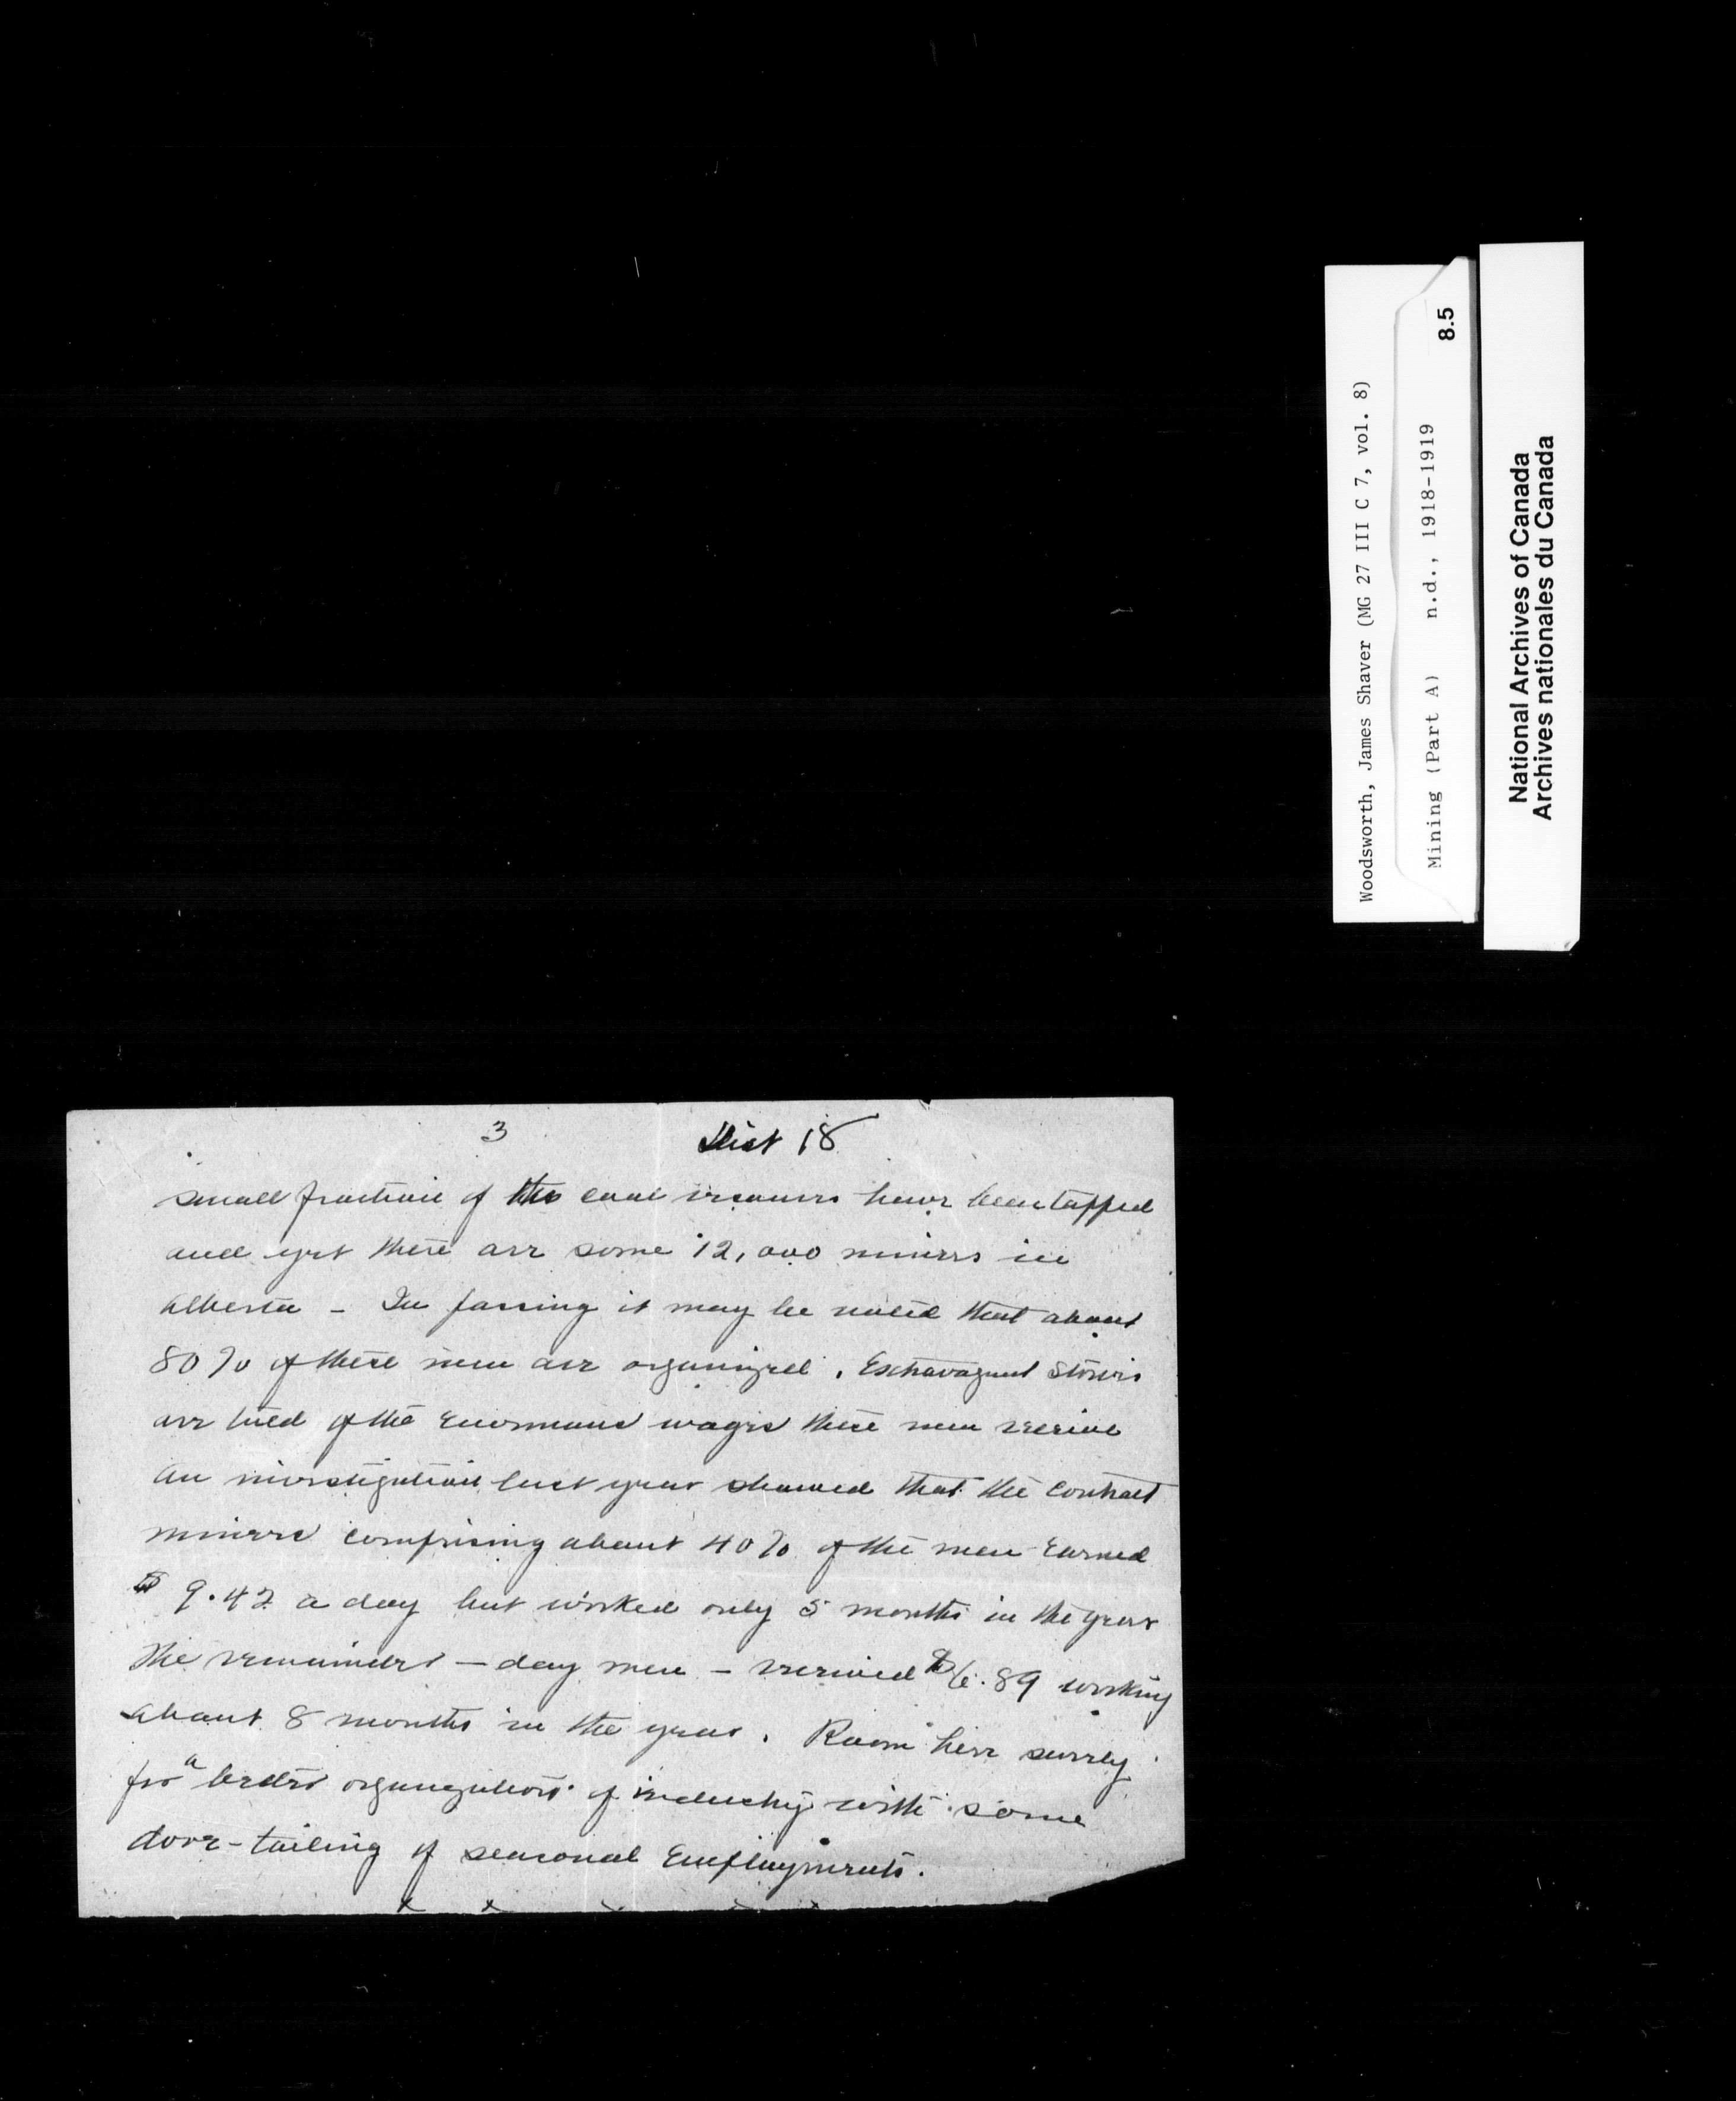 Woodsworth, James Shaver (MG 27 III C 7, vol. 8)
Mining (Part A) n.d., 1918-1919 8.5
National Archives of Canada
Archives nationales du Canada
3 Dist 18
small fraction of the coal resources have been tapped
and yet there are some 12,000 miners in
Alberta - In passing it may be noted that about
80% of these men are organized. Extravagant stories
are told of the enormous wages these men receive
An investigation last year showed that the contract
miners comprising about 40% of the men earned
$ 9.42 a day but worked only 5 months in the year
The remainder - day men - received $6.89 working
about 8 months in the year. Room here surely
for a better organization of industry with some
dove-tailing of seasonal employments.
x x x x x